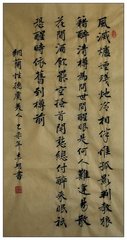 風滅爐煙殘灺冷相伴唯孤影判教狼
藉醉清樽為問世間醒眼是何人難逢易散
花間酒飲罷空搔首閒愁總付醉來眠祇
恐醒時依舊到樽前
納蘭性德虞美人 年 書